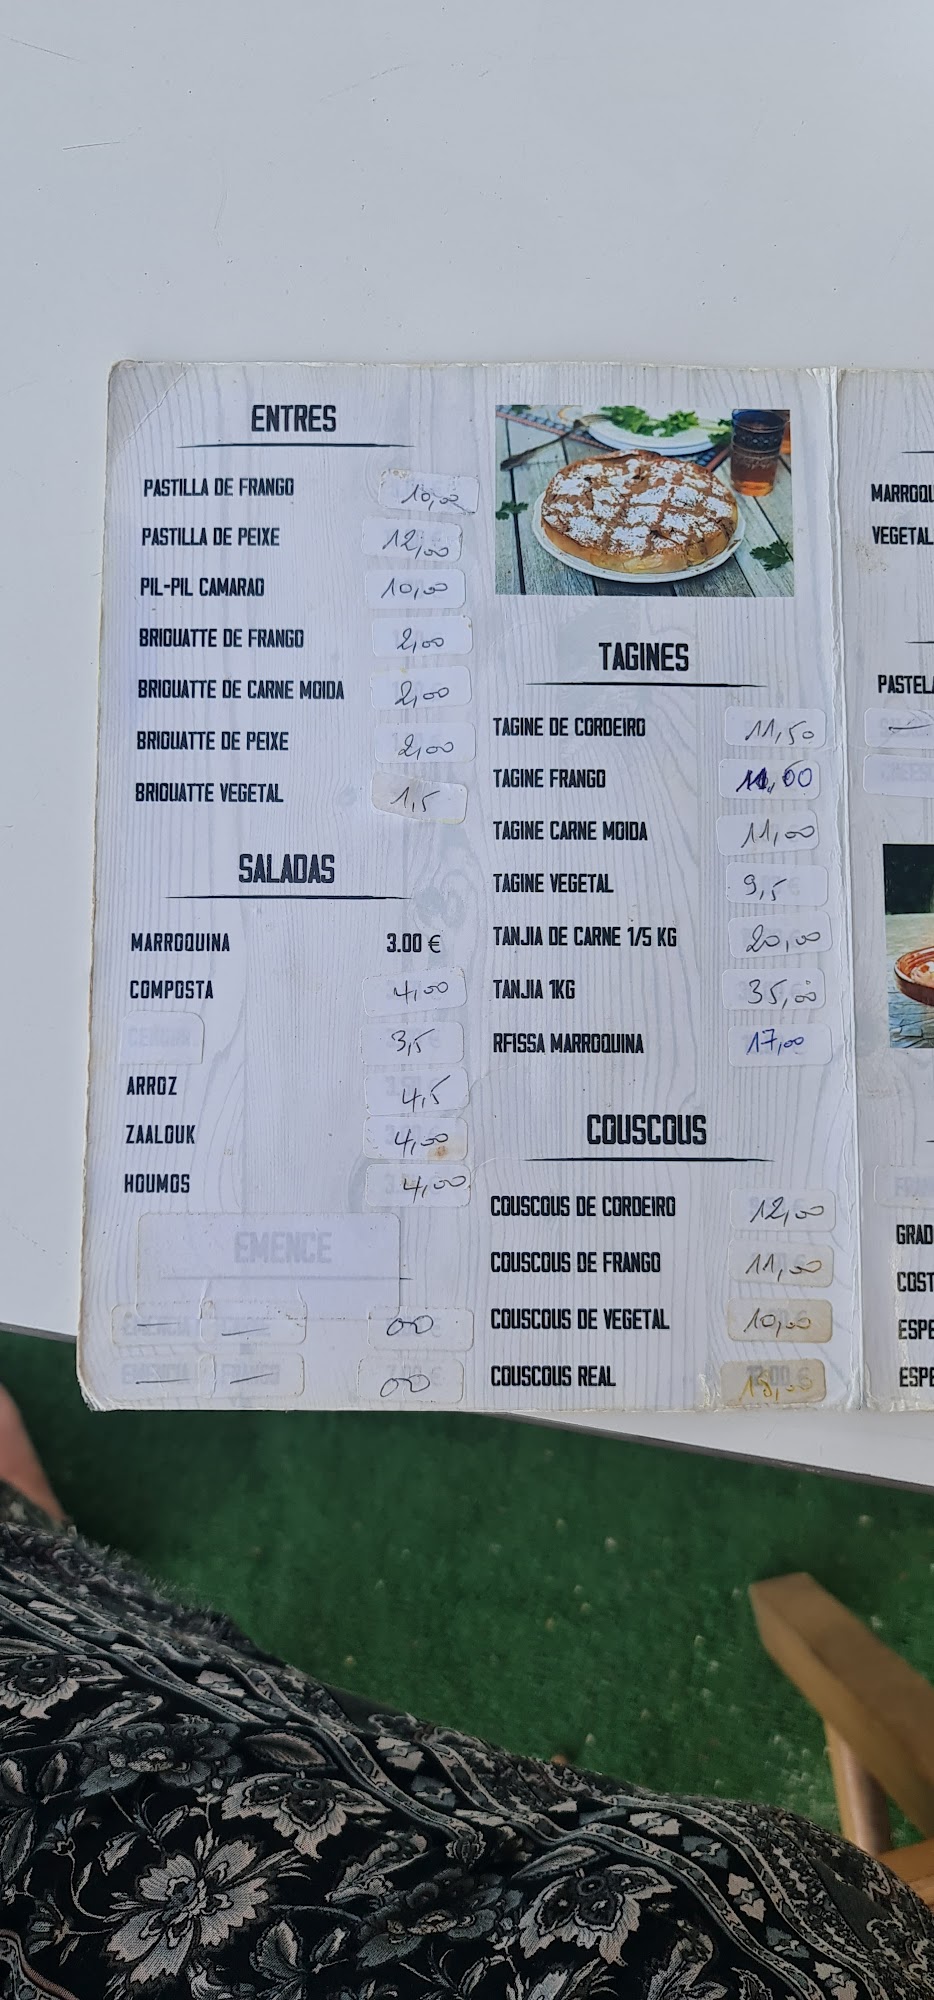 ENTRES
PASTILLA DE FRANGO 10,00
PASTILLA DE PEIXE 12,00
PIL-PIL CAMARAO 10,00
BRIOUATTE DE FRANGO 2,00
BRIOUATTE DE CARNE MOIDA 2,00
BRIOUATTE DE PEIXE 2,00
BRIOUATTE VEGETAL 1,5
SALADAS
MARROQUINA 3.00 €
COMPOSTA 4,00
3,5
ARROZ 4,5
ZAALOUK 4,00
HOUMOS 4,00
EMENCE
00
00
TAGINES
TAGINE DE CORDEIRO 11,50
TAGINE FRANGO 11,00
TAGINE CARNE MOIDA 11,00
TAGINE VEGETAL 9,5
TANJIA DE CARNE 1/5 KG 20,00
TANJIA 1KG 35,00
RFISSA MARROQUINA 17,00
COUSCOUS
COUSCOUS DE CORDEIRO 12,00
COUSCOUS DE FRANGO 11,00
COUSCOUS DE VEGETAL 10,00
COUSCOUS REAL
MARROQU
VEGETAL
PASTELA
GRAD
COST
ESPE
ESPE